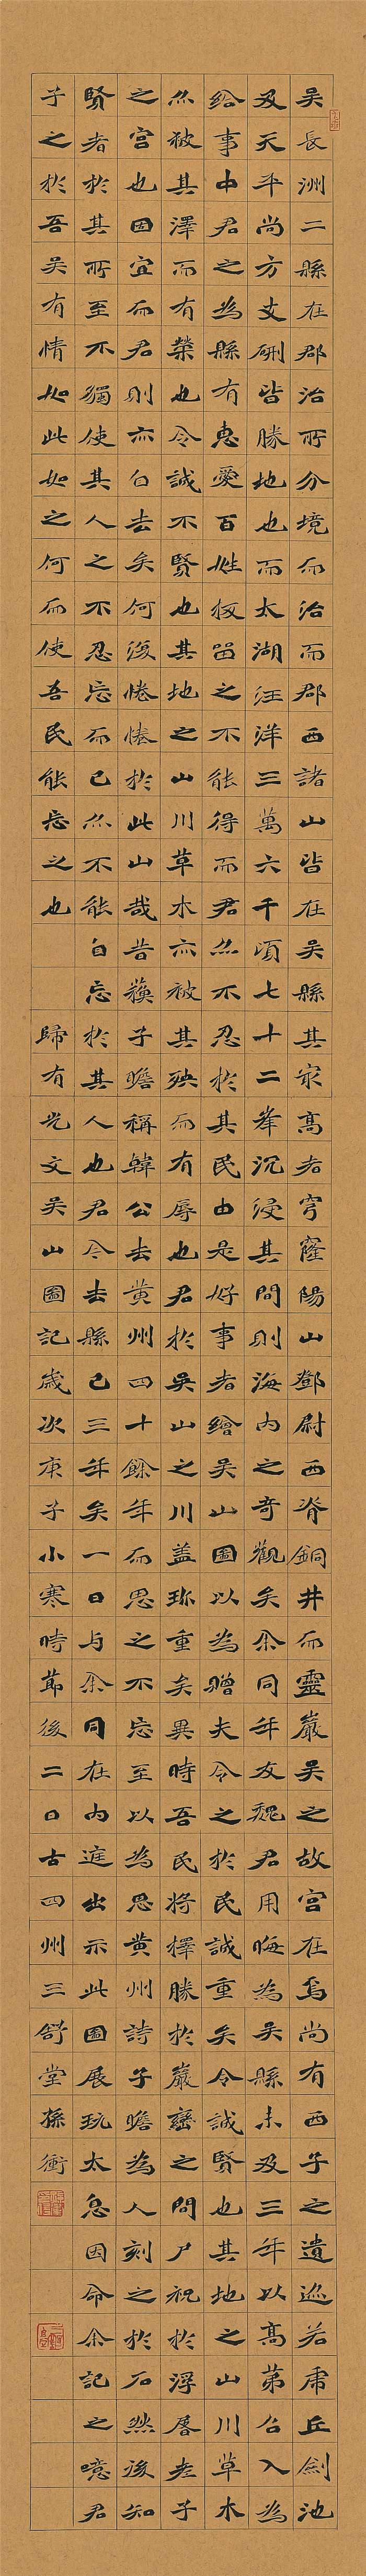 吴長洲二縣在郡治所分境而治而郡西諸山皆在吴縣其冣高者穹窿陽山鄧尉西脊銅井而靈巖吴之故宫在焉尚有西子之遺迹若虎丘劍池
及天平尚方支硎皆勝地也而太湖汪洋三萬六千頃七十二峯沉浸其間則海内之奇觀矣余同年友魏君用晦為吴縣未及三年以高第召入為
給事中君之為縣有惠愛百姓扳留之不能得而君亦不忍於其民由是好事者繪吴山圖以為贈夫令之於民誠重矣令誠賢也其地之山川草木
亦被其澤而有榮也令誠不賢也其地之山川草木亦被其殃而有辱也君於吴山之川盖珎重矣異時吾民將擇勝於巖巒之間尸祝於浮屠老子
之宫也固宜而君則亦自去矣何復惓惓於此山哉昔蘇子瞻稱韓公去黄州四十餘年而思之不忘至以為思黄州詩子瞻為人刻之於石然後知
賢者於其所至不獨使其人之不忍忘而已亦不能自忘於其人也君今去縣已三年矣一日与余同在内庭出示此圖展玩太息因命余記之噫君
子之於吾吴有情如此如之何而使吾民能忘之也 歸有光文吴山圖記歲次庚子小寒時節後二日古四州三舒堂孫衝